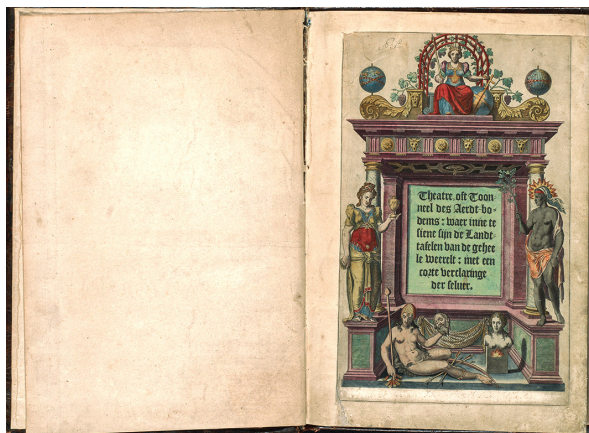 Theatre, oft Toon
neel des Aerdt-bo-
dems: waer inne te
siene sijn de Landt-
tafelen van de gehee
le weerelt: met een
corte verclaringe
der selver.